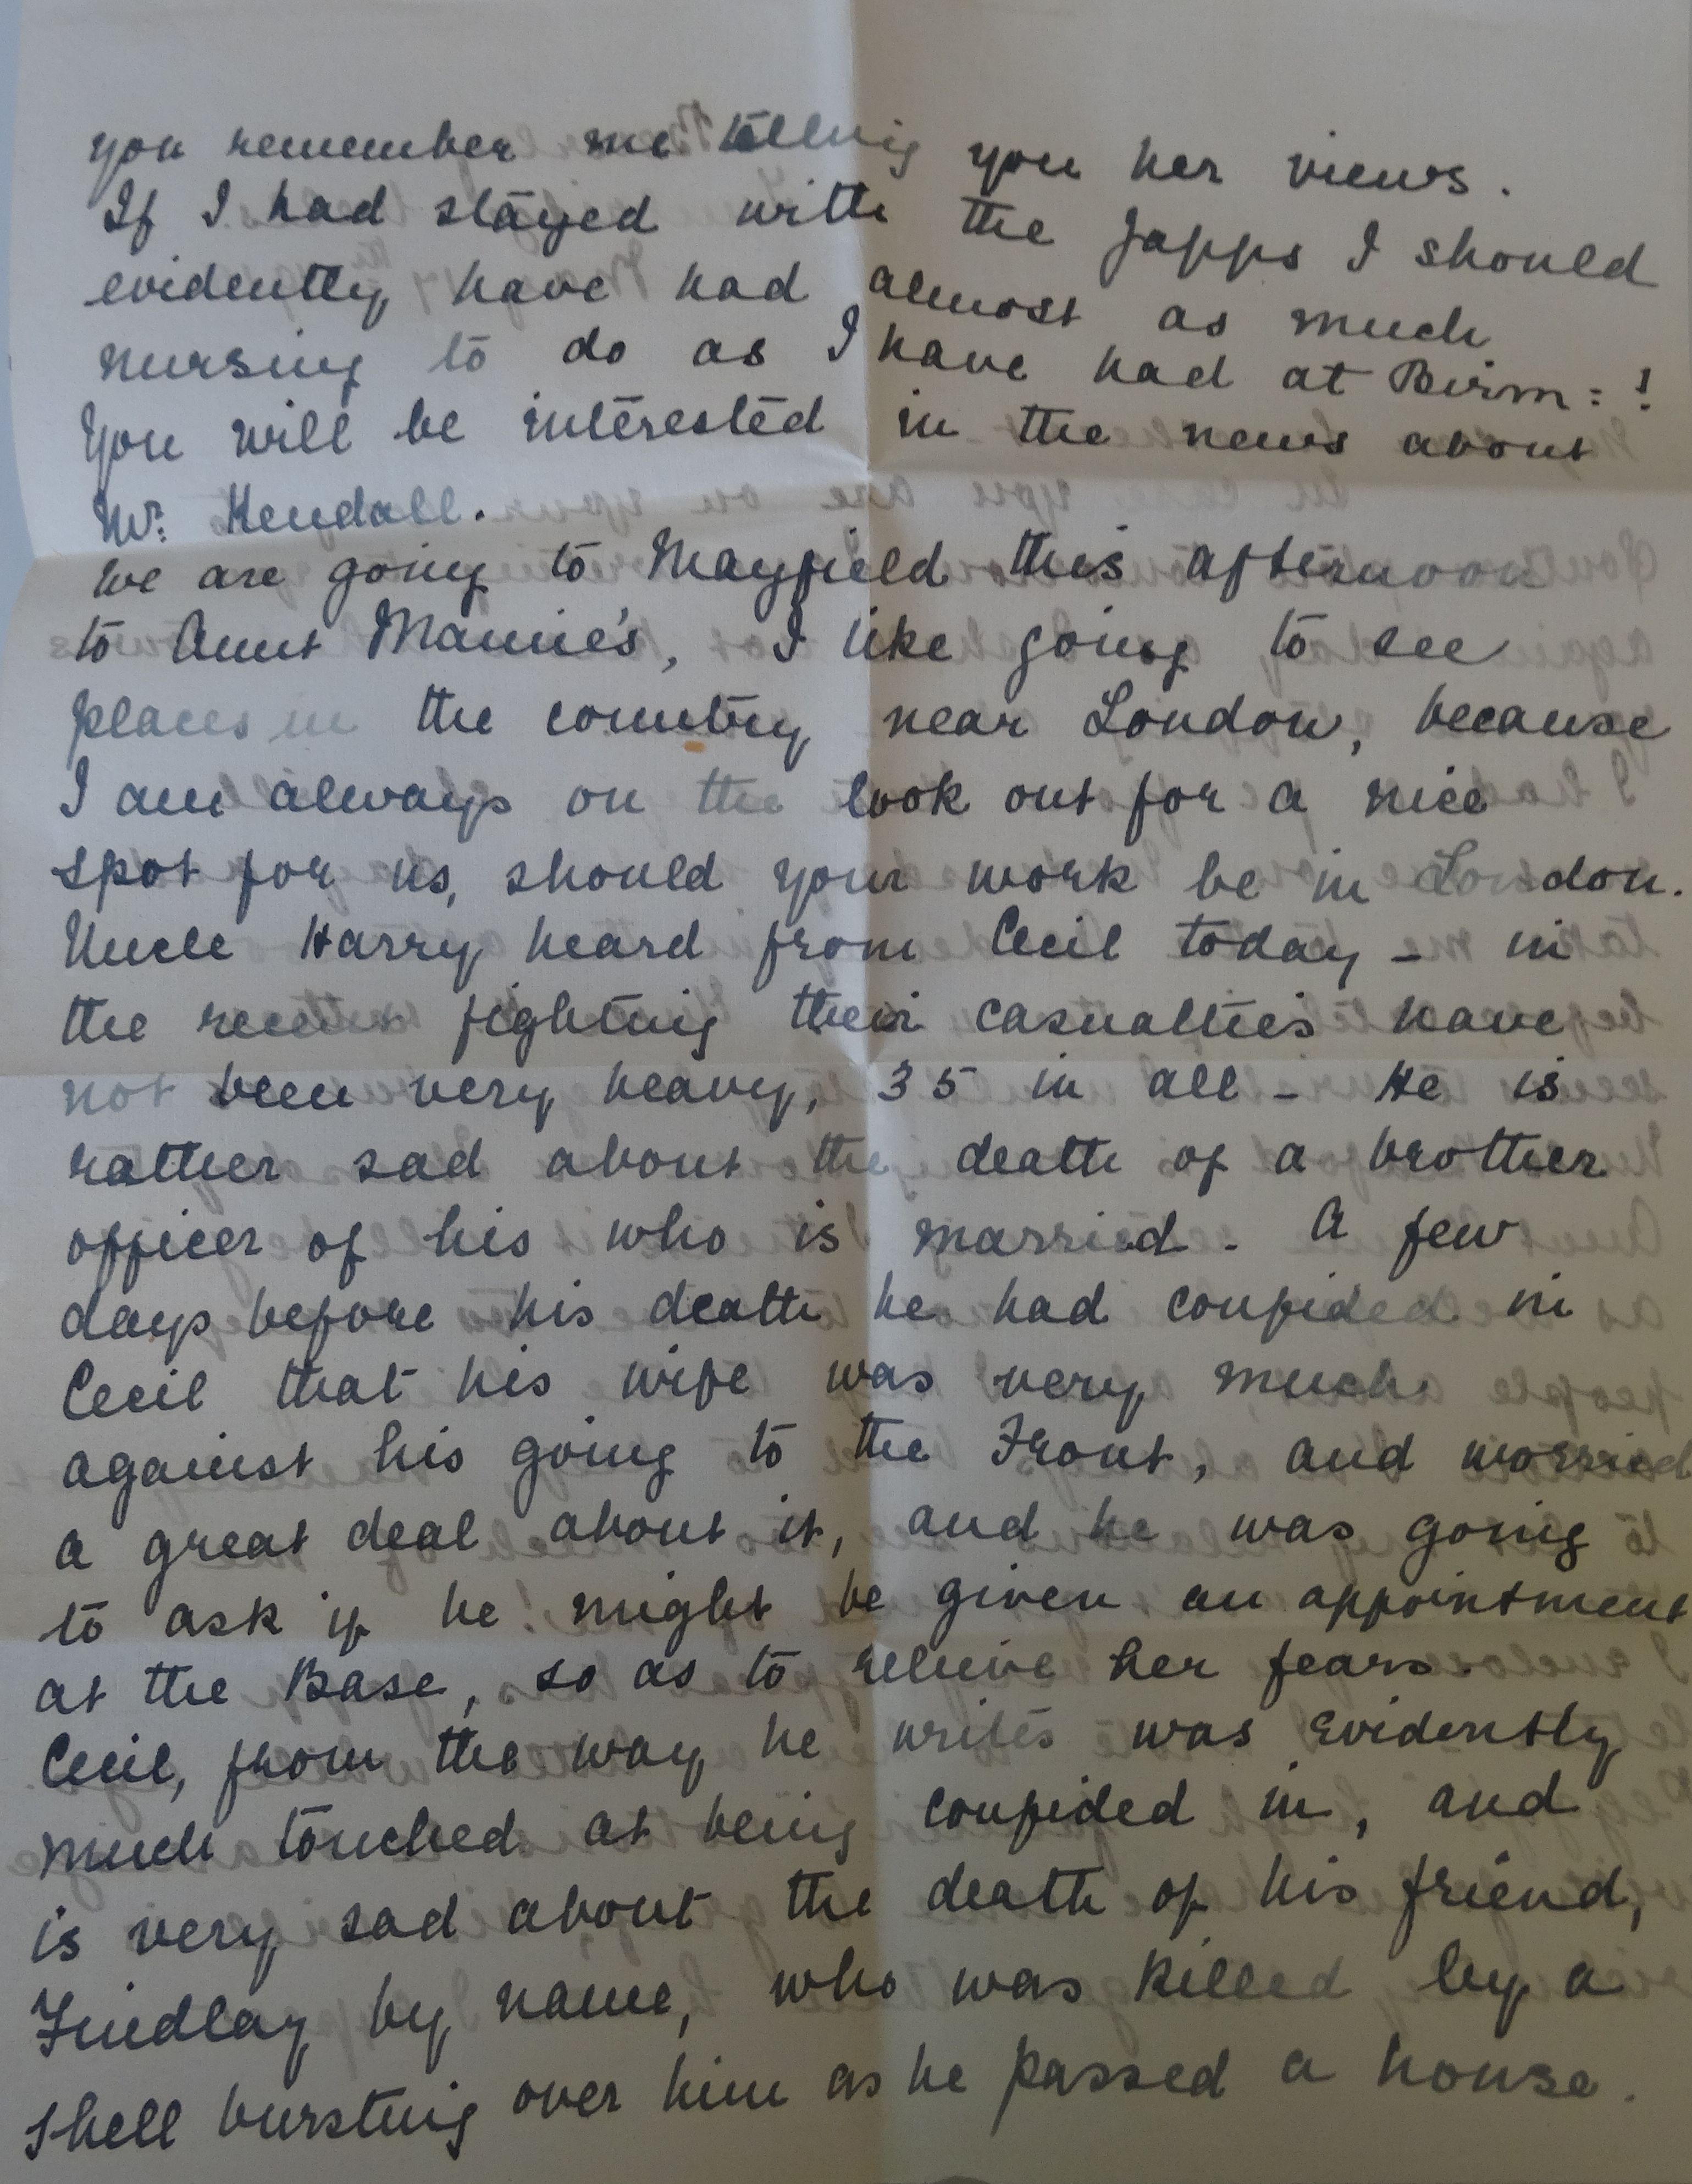 you remember me telling you her views.
If I had stayed with the Japps I should
evidently have had almost as much
nursing to do as I have had at Birm: !
You will be interested in the news about
Mr. Kendall.
We are going to Mayfield this afternoon
to Aunt Mamie's, I like going to see
places in the country near London, because
I am always on the look out for a nice
spot for us, should your work be in London.
Uncle Harry heard from Cecil today - in
the recent fighting their casualties have
not been very heavy, 35 in all - He is
rather sad about the death of a brother
officer of his who is married - A few
days before his death he had confided in
Cecil that his wife was very much
against his going to the Front, and worried
a great deal about it, and he was going
to ask if he might be given an appointment
at the Base, so as to relieve her fears.
Cecil, from the way he writes was evidently
much touched at being confided in, and
is very sad about the death of his friend,
Findlay by name, who was killed by a
shell bursting over him as he passed a house.